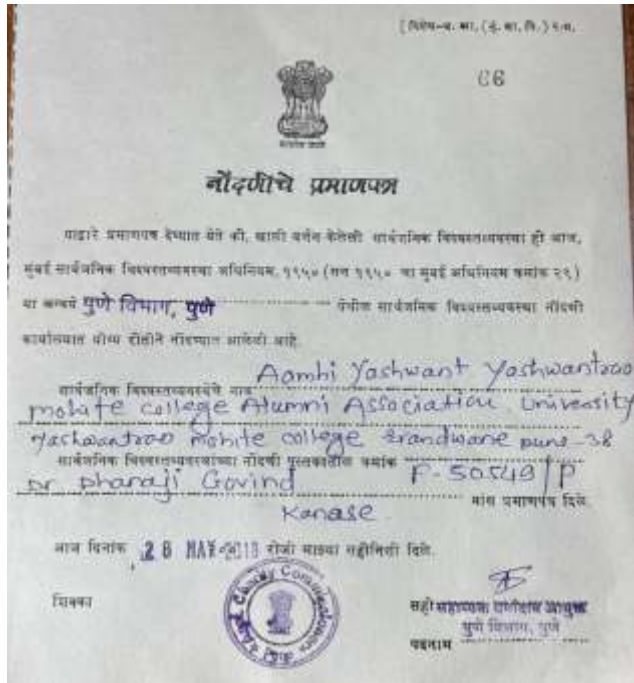 66
नोंदणीचे प्रमाणपत्र
याद्वारे प्रमाणपत्र देण्यात येते की, खाली वर्णन केलेली सार्वजनिक विश्वस्तव्यवस्था ही आज,
मुंबई सार्वजनिक विश्वस्तव्यवस्था अधिनियम, १९५० (सन १९५० चा मुंबई अधिनियम क्रमांक २९)
या अन्वये पुणे विभाग, पुणे येथील सार्वजनिक विश्वस्तव्यवस्था नोंदणी
कार्यालयात योग्य रीतीने नोंदण्यात आलेली आहे.
सार्वजनिक विश्वस्तव्यवस्थेचे नाव Aamhi Yashwant Yashwantrao
mohite college Alumni Association University
Yashwantrao mohite college Erandwane pune-38
सार्वजनिक विश्वस्तव्यवस्थांच्या नोंदणी पुस्तकातील क्रमांक F-50549/P
Dr. Dhanaji Govind
Kanase यांस प्रमाणपत्र दिले.
आज दिनांक 28 MAY 2018 रोजी माझ्या सहीनिशी दिले.
शिक्का
सही सहाय्यक धर्मादाय आयुक्त
पुणे विभाग, पुणे
पदनाम